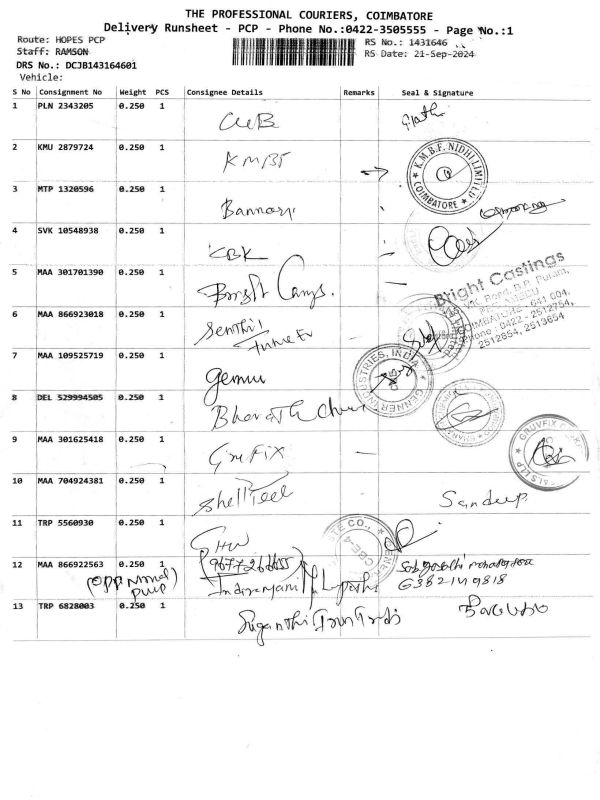 THE PROFESSIONAL COURIERS, COIMBATORE
Delivery Runsheet - PCP - Phone No.:0422-3505555 - Page No.:1
Route: HOPES PCP
RS No.: 1431646
Staff: RAMSON
RS Date: 21-Sep-2024
DRS No.: DCJB143164601
Vehicle:
S No Consignment No Weight PCS Consignee Details Remarks Seal & Signature
1 PLN 2343205 0.250 1 CUB
2 KMU 2879724 0.250 1 KMBF
K.M.B.F. NIDHI LIMITED
COIMBATORE
3 MTP 1320596 0.250 1 Bannari
4 SVK 10548938 0.250 1 CBK
5 MAA 301701390 0.250 1 Bright
Bright Castings
6 MAA 866923018 0.250 1 Senthil
Future
COIMBATORE - 641 004.
Phone : 0422 - 2512754,
2512654, 2513654
7 MAA 109525719 0.250 1 Gemu
INDUSTRIES, INDIA
8 DEL 529994505 0.250 1 Bharath
9 MAA 301625418 0.250 1 Grufix
GRUVFIX
10 MAA 704924381 0.250 1 Shell Teel Sandeep
11 TRP 5560930 0.250 1
STE CO.,
CBE-4
12 MAA 866922563 0.250 1
9677266655
6382149818
13 TRP 6828003 0.250 1 Suganthi Iron Traders